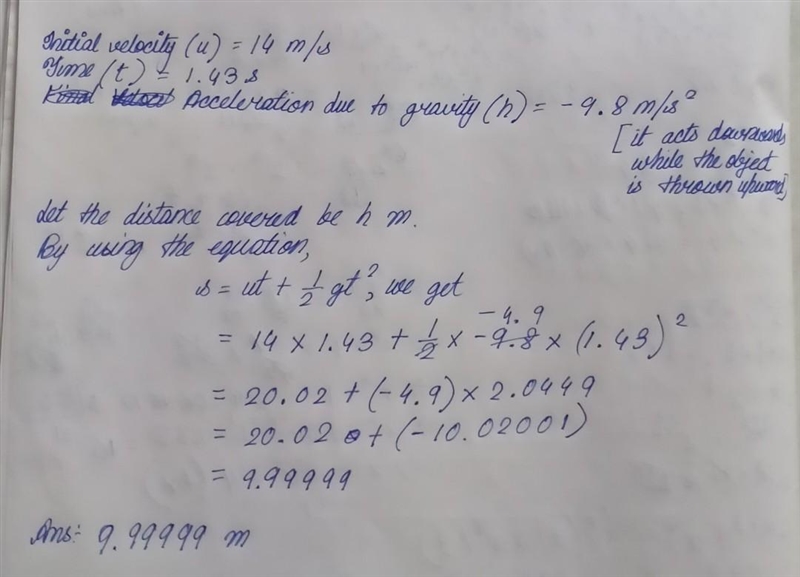 Initial velocity (u) = 14 m/s
Time (t) = 1.43 s
Acceleration due to gravity (h) = -9.8 m/s²
[it acts downwards
while the object
is thrown upward]
Let the distance covered be h m.
By using the equation,
s = ut + 1/2 gt², we get
= 14 × 1.43 + 1/2 × -9.8 × (1.43)²
-4.9
= 20.02 + (-4.9) × 2.0449
= 20.02 + (-10.02001)
= 9.99999
Ans:- 9.99999 m